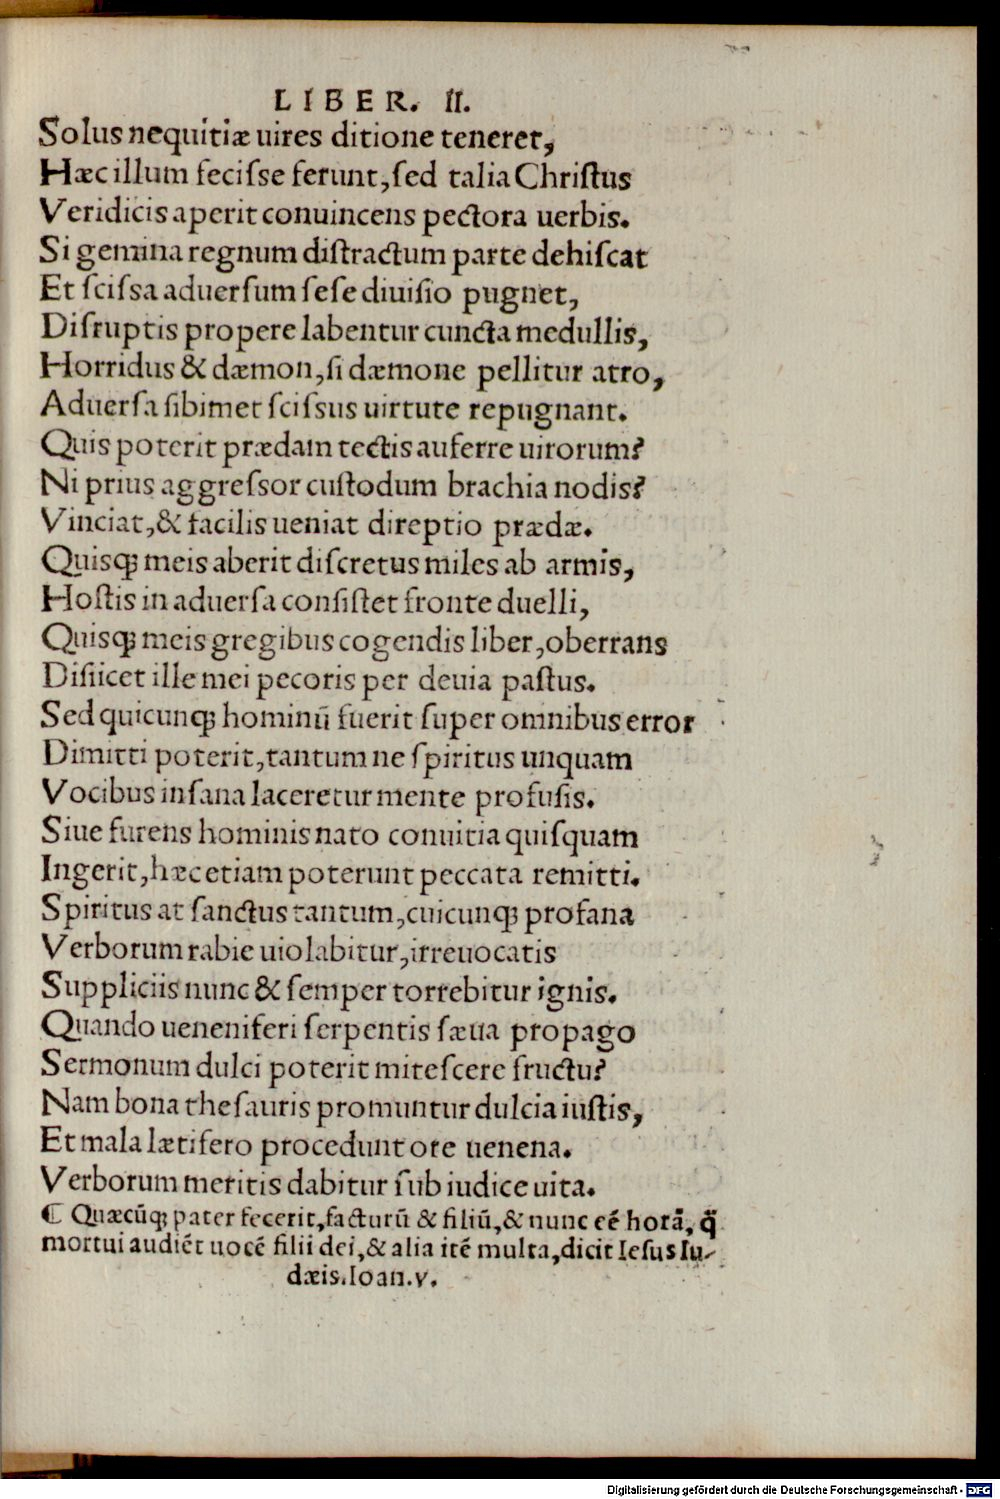 LIBER. II.
Solus nequitiæ uires ditione teneret,
Hæc illum fecisse ferunt, sed talia Christus
Veridicis aperit conuincens pectora uerbis.
Si gemina regnum distractum parte dehiscat
Et scissa aduersum sese diuisio pugnet,
Disruptis propere labentur cuncta medullis,
Horridus & dæmon, si dæmone pellitur atro,
Aduersa sibimet scissus uirtute repugnant.
Quis poterit prædam tectis auferre uirorum?
Ni prius aggressor custodum brachia nodis?
Vinciat, & facilis ueniat direptio prædæ.
Quisqꝫ meis aberit discretus miles ab armis,
Hostis in aduersa consistet fronte duelli,
Quisqꝫ meis gregibus cogendis liber, oberrans
Disiicet ille mei pecoris per deuia pastus.
Sed quicunqꝫ hominū fuerit super omnibus error
Dimitti poterit, tantum ne spiritus unquam
Vocibus insana laceretur mente profusis.
Siue furens hominis nato conuitia quisquam
Ingerit, hæc etiam poterunt peccata remitti.
Spiritus at sanctus tantum, cuicunqꝫ profana
Verborum rabie uiolabitur, irreuocatis
Suppliciis nunc & semper torrebitur ignis.
Quando ueneniferi serpentis sæua propago
Sermonum dulci poterit mitescere fructu?
Nam bona thesauris promuntur dulcia iustis,
Et mala lætifero procedunt ore uenena.
Verborum meritis dabitur sub iudice uita.
¶ Quæcūqꝫ pater fecerit, facturū & filiū, & nunc eē horā, q̄
mortui audiēt uocē filii dei, & alia itē multa, dicit Iesus Iu-
dæis. Ioan. v.
Digitalisierung gefördert durch die Deutsche Forschungsgemeinschaft - DFG